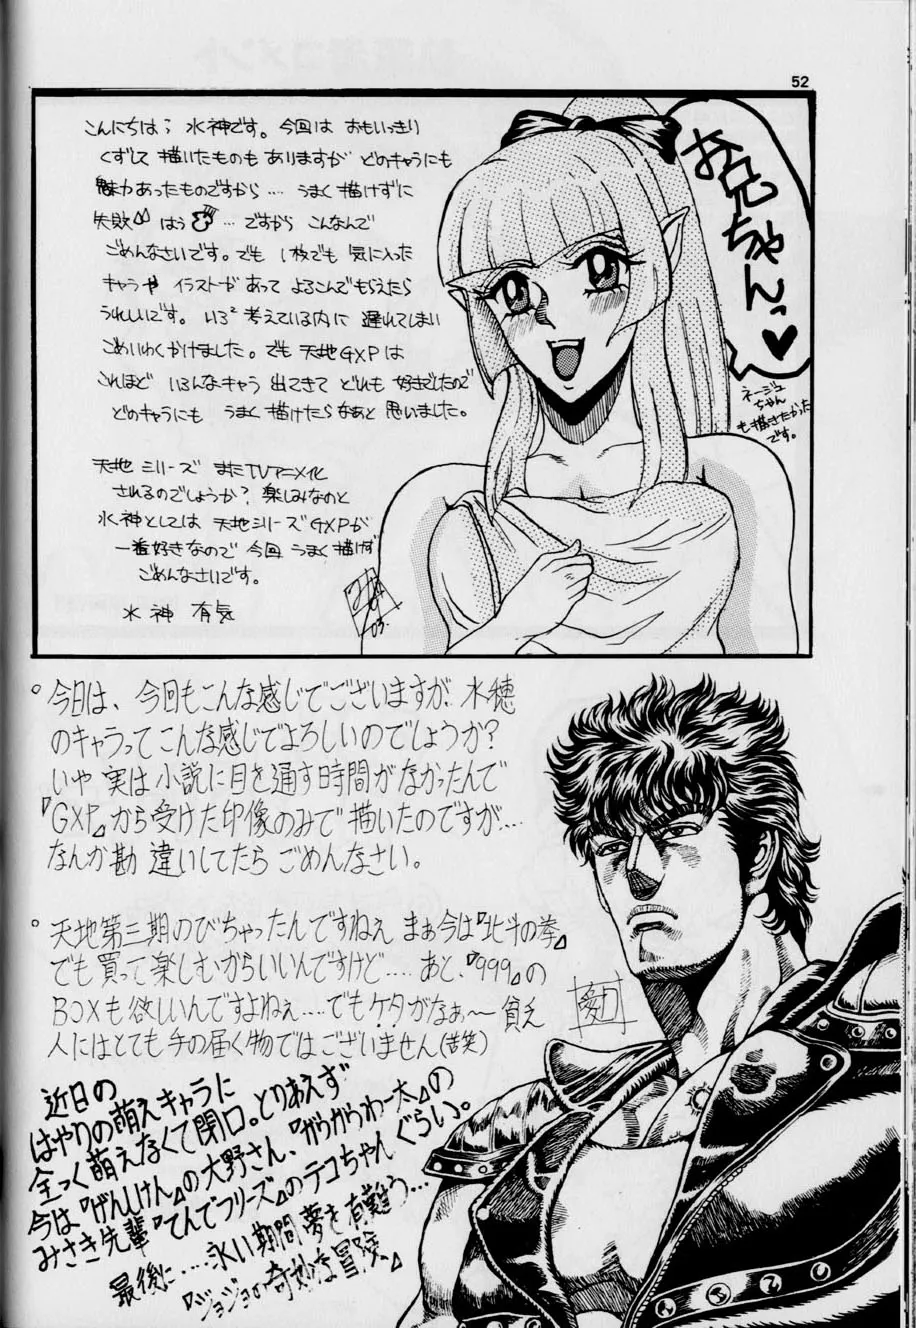 52
こんにちは、水神です。今回は おもいっきり
くずして 描いたものも ありますが どのキャラにも
魅力あったものですから…. うまく描けずに
失敗 はう …ですから こんなんで
ごめんなさいです。でも 1枚でも 気に入った
キャラや イラストが あって よろこんでもらえたら
うれしいです。いろ² 考えている内に 遅れてしまい
ごめいわくかけました。でも 天地GXPは
これほど いろんなキャラ 出てきて どれも 好きでしたので
どのキャラにも うまく 描けたらなあと 思いました。
天地シリーズ またTVアニメ化
されるのでしょうか? 楽しみなのと
水神としては 天地シリーズGXPが
一番好きなので 今回 うまく描けず
ごめんなさいです。
水神 有気
お兄ちゃんっ♥
ネージュ
ちゃん
も描きたかった
です。
03.
○今日は、今回もこんな感じでございますが、水穂
のキャラってこんな感じでよろしいのでしょうか?
いや 実は小説に目を通す時間がなかったんで
『GXP』から受けた印像のみで描いたのですが….
なんか勘違いしてたらごめんなさい。
○天地第三期のびちゃったんですねぇ まぁ今は『北斗の拳』
でも買って楽しむからいいんですけど…..あと、『999』の
BOXも欲しいんですよねぇ….でもケタがなぁ〜 貧乏
人にはとても手の届く物ではございません(苦笑)
近日の
はやりの萌えキャラに
全っく萌えなくて閉口。とりあえず
今は『げんしけん』の大野さん、『がうがうわー太』の
みさき先輩『てんでフリーズ』のテコちゃんぐらい。
最後に…..永い期間夢を有難う…
『ジョジョの奇妙な冒険』